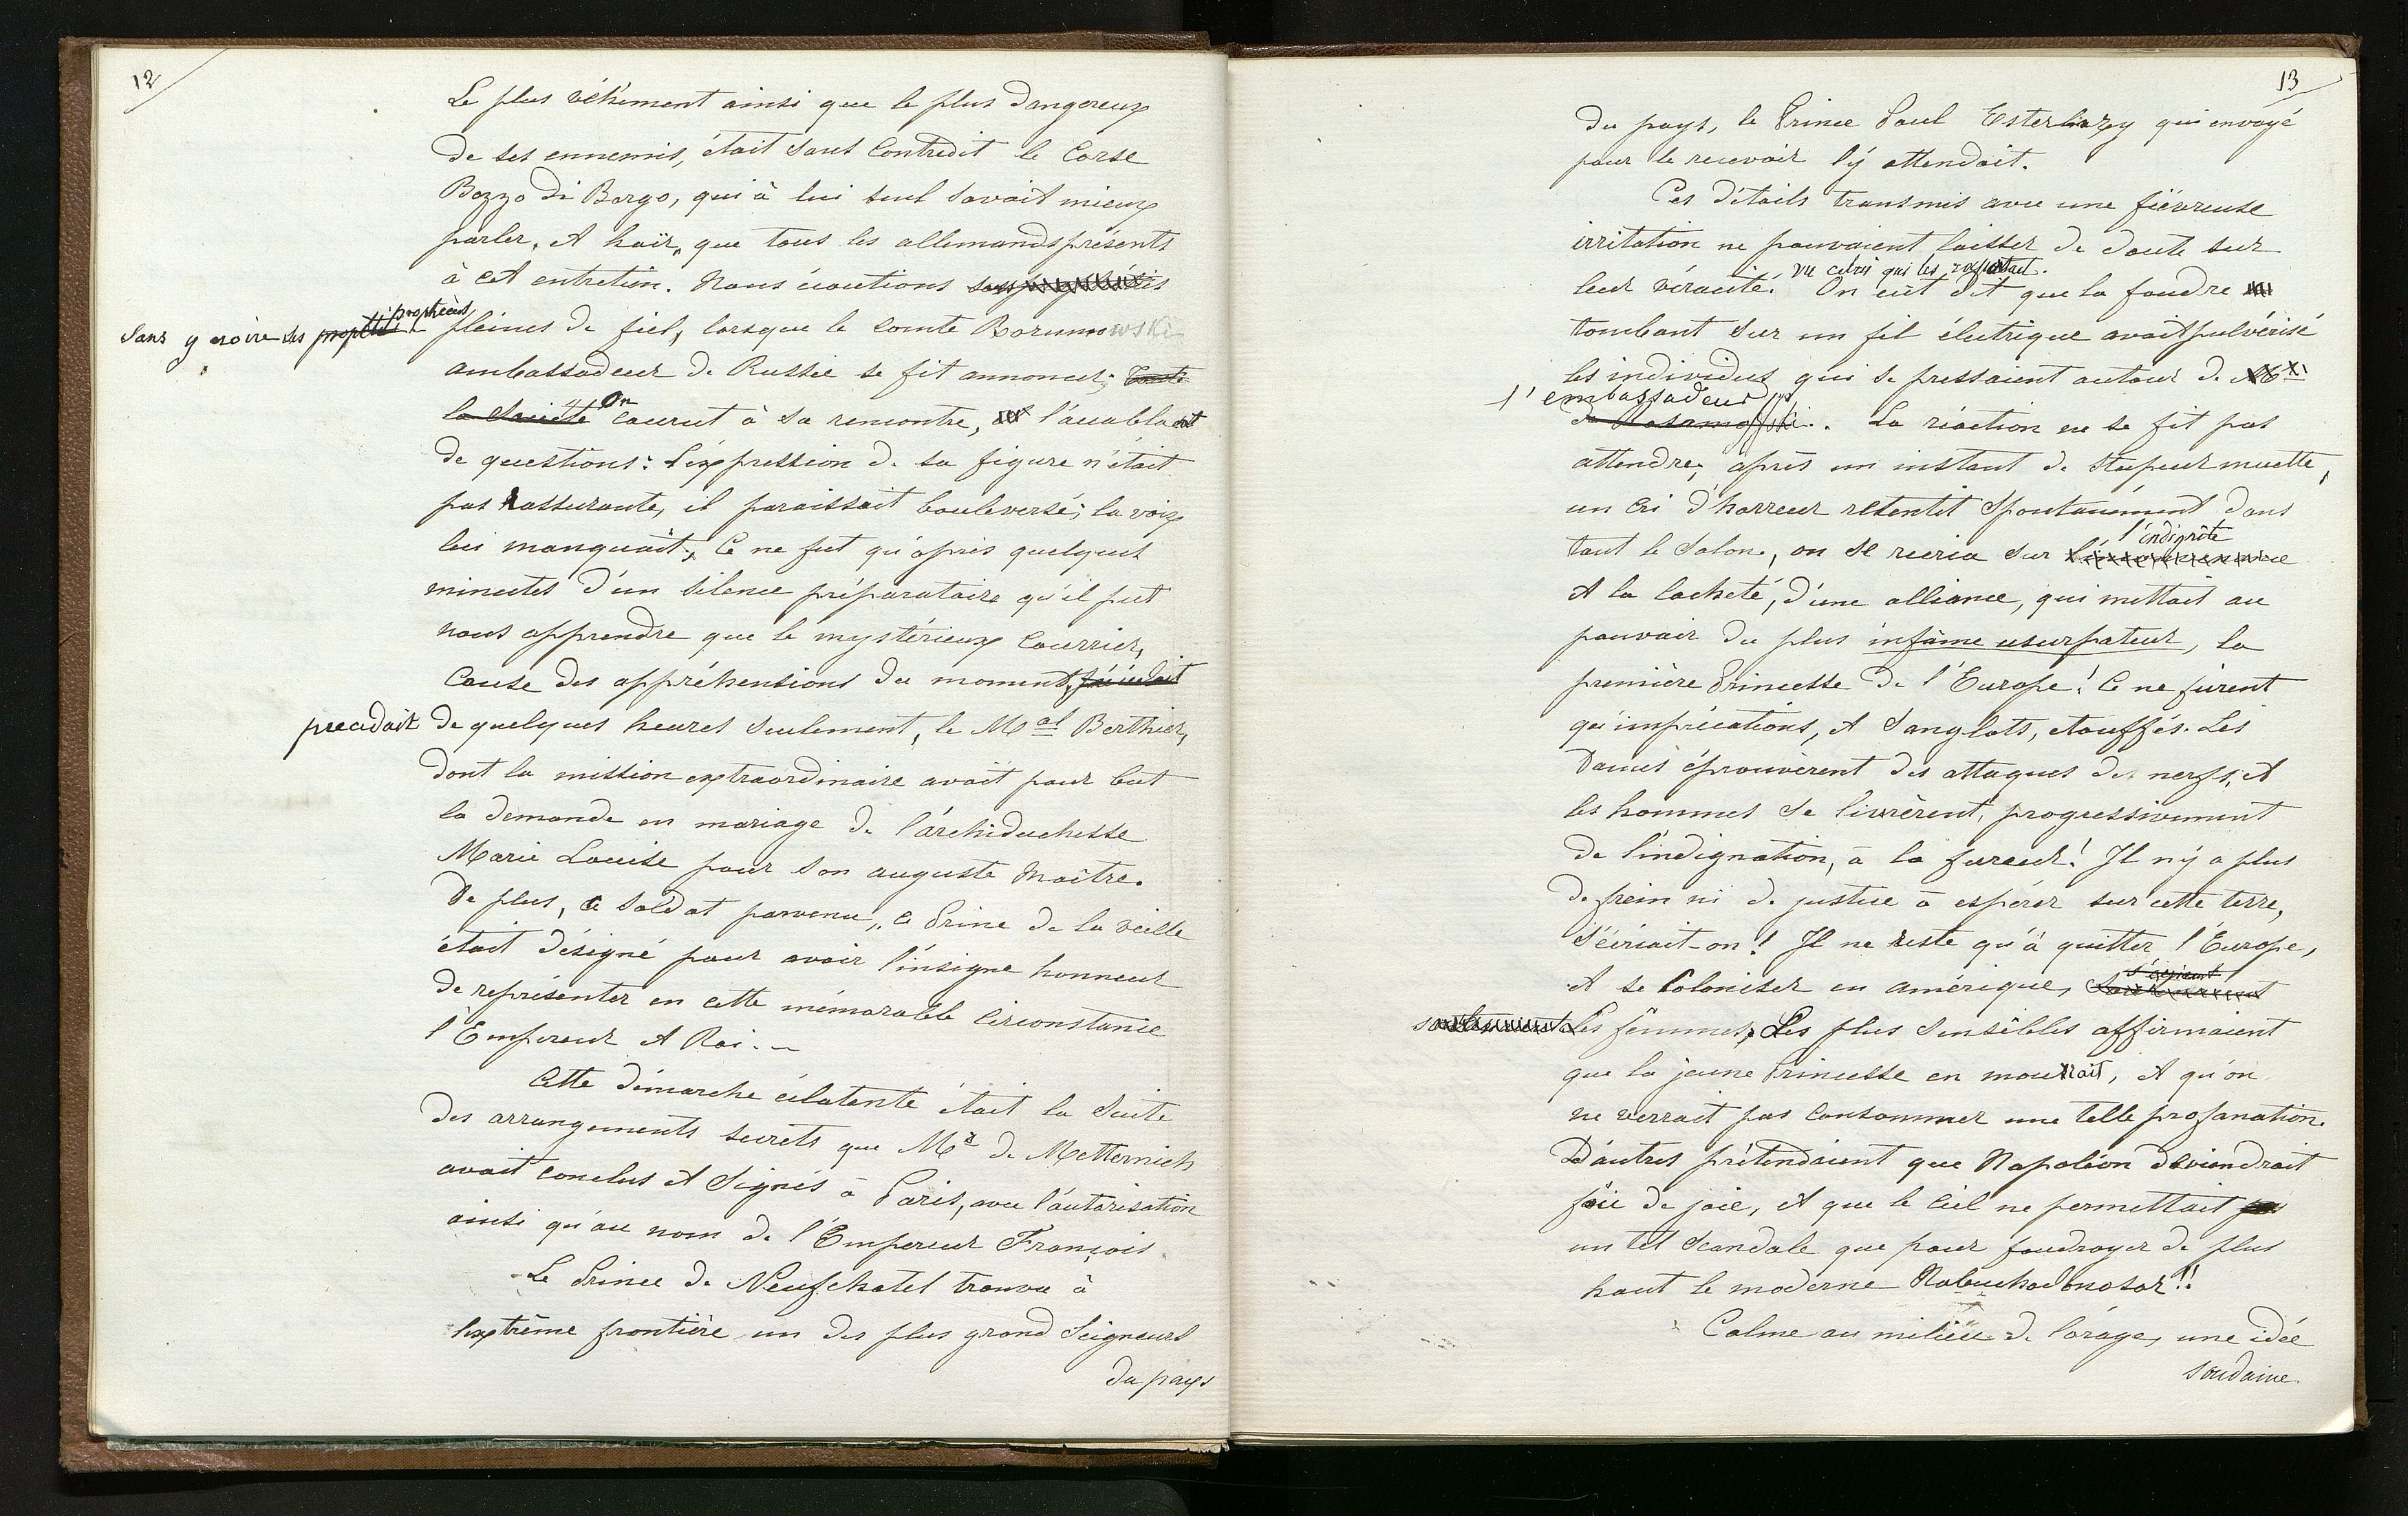 12
Le plus véhément ainsi que le plus dangereux
de ses ennemis, était sans contredit le Corse
Bozzo di Borgo, qui à lui seul savait mieux
parler, et haïr, que tous les allemands présents
à cet entretien. Nous écoutions
Sans y croire ses prophéties pleines de fiel, lorsque le Comte Rozumowski
ambassadeur de Russie se fit annoncer; toute
la Société On courut à sa rencontre, l'accablant
de questions: l'expression de sa figure n'était
pas rassurante, il paraissait bouleversé; la voix
lui manquait; Ce ne fut qu'après quelques
minutes d'un silence préparatoire qu'il put
nous apprendre que le mystérieux Courrier,
Cause des appréhensions du moment, précédait
precedait de quelques heures seulement, le Mal Berthier,
dont la mission extraordinaire avait pour but
la demande en mariage de l'archiduchesse
Marie Louise pour son auguste Maître.
De plus, ce soldat parvenu, ce Prince de la veille
était désigné pour avoir l'insigne honneur
de représenter en cette mémorable Circonstance
l'Empereur et Roi.
Cette démarche éclatente était la suite
des arrangements secrets que Mr de Metternich
avait conclus et signés à Paris, avec l'autorisation
ainsi qu'au nom de l'Empereur François.
Le Prince de Neufchatel trouva à
l'extrème frontière un des plus grand Seigneurs
du pays
13
du pays, le Prince Paul Esterhazy qui envoyé
pour le recevoir l'y attendait.
Ces détails transmis avec une fiévreuse
irritation ne pouvaient laisser de doute sur
leur véracité. vu celui qui les rapportait. On eût dit que la foudre
tombant sur un fil électrique avait pulvérisé
les individus qui se pressaient autour de
l'embassadeur
La réaction ne se fit pas
attendre; après un instant de stupeur muette,
un cri d'horreur retentit spontanément dans
tout le salon, on se récria sur l'indignité
et la lacheté, d'une alliance, qui mettait au
pouvoir du plus infâme usurpateur, la
première Princesse de l'Europe! Ce ne fûrent
qu'imprécations, et sanglots, etouffés. Les
Dames éprouvèrent des attaques de nerfs, et
les hommes se livrèrent, progressivement
de l'indignation, à la fureur! Il n'y a plus
de frein ni de justice à espérer sur cette terre,
s'écriait-on! Il ne reste qu'à quitter l'Europe,
et se Coloniser en amérique,
Les femmes, Les plus sensibles affirmaient
que la jeune Princesse en mourrait, et qu'on
ne verrait pas consommer une telle profanation.
D'autres prétendaient que Napoléon deviendrait
foû de joie, et que le Ciel ne permettait pas
un tel scandale que pour foudroyer de plus
haut le moderne Nabuchodonosor!!
Calme au milieu de l'orage, une idée
soudaine